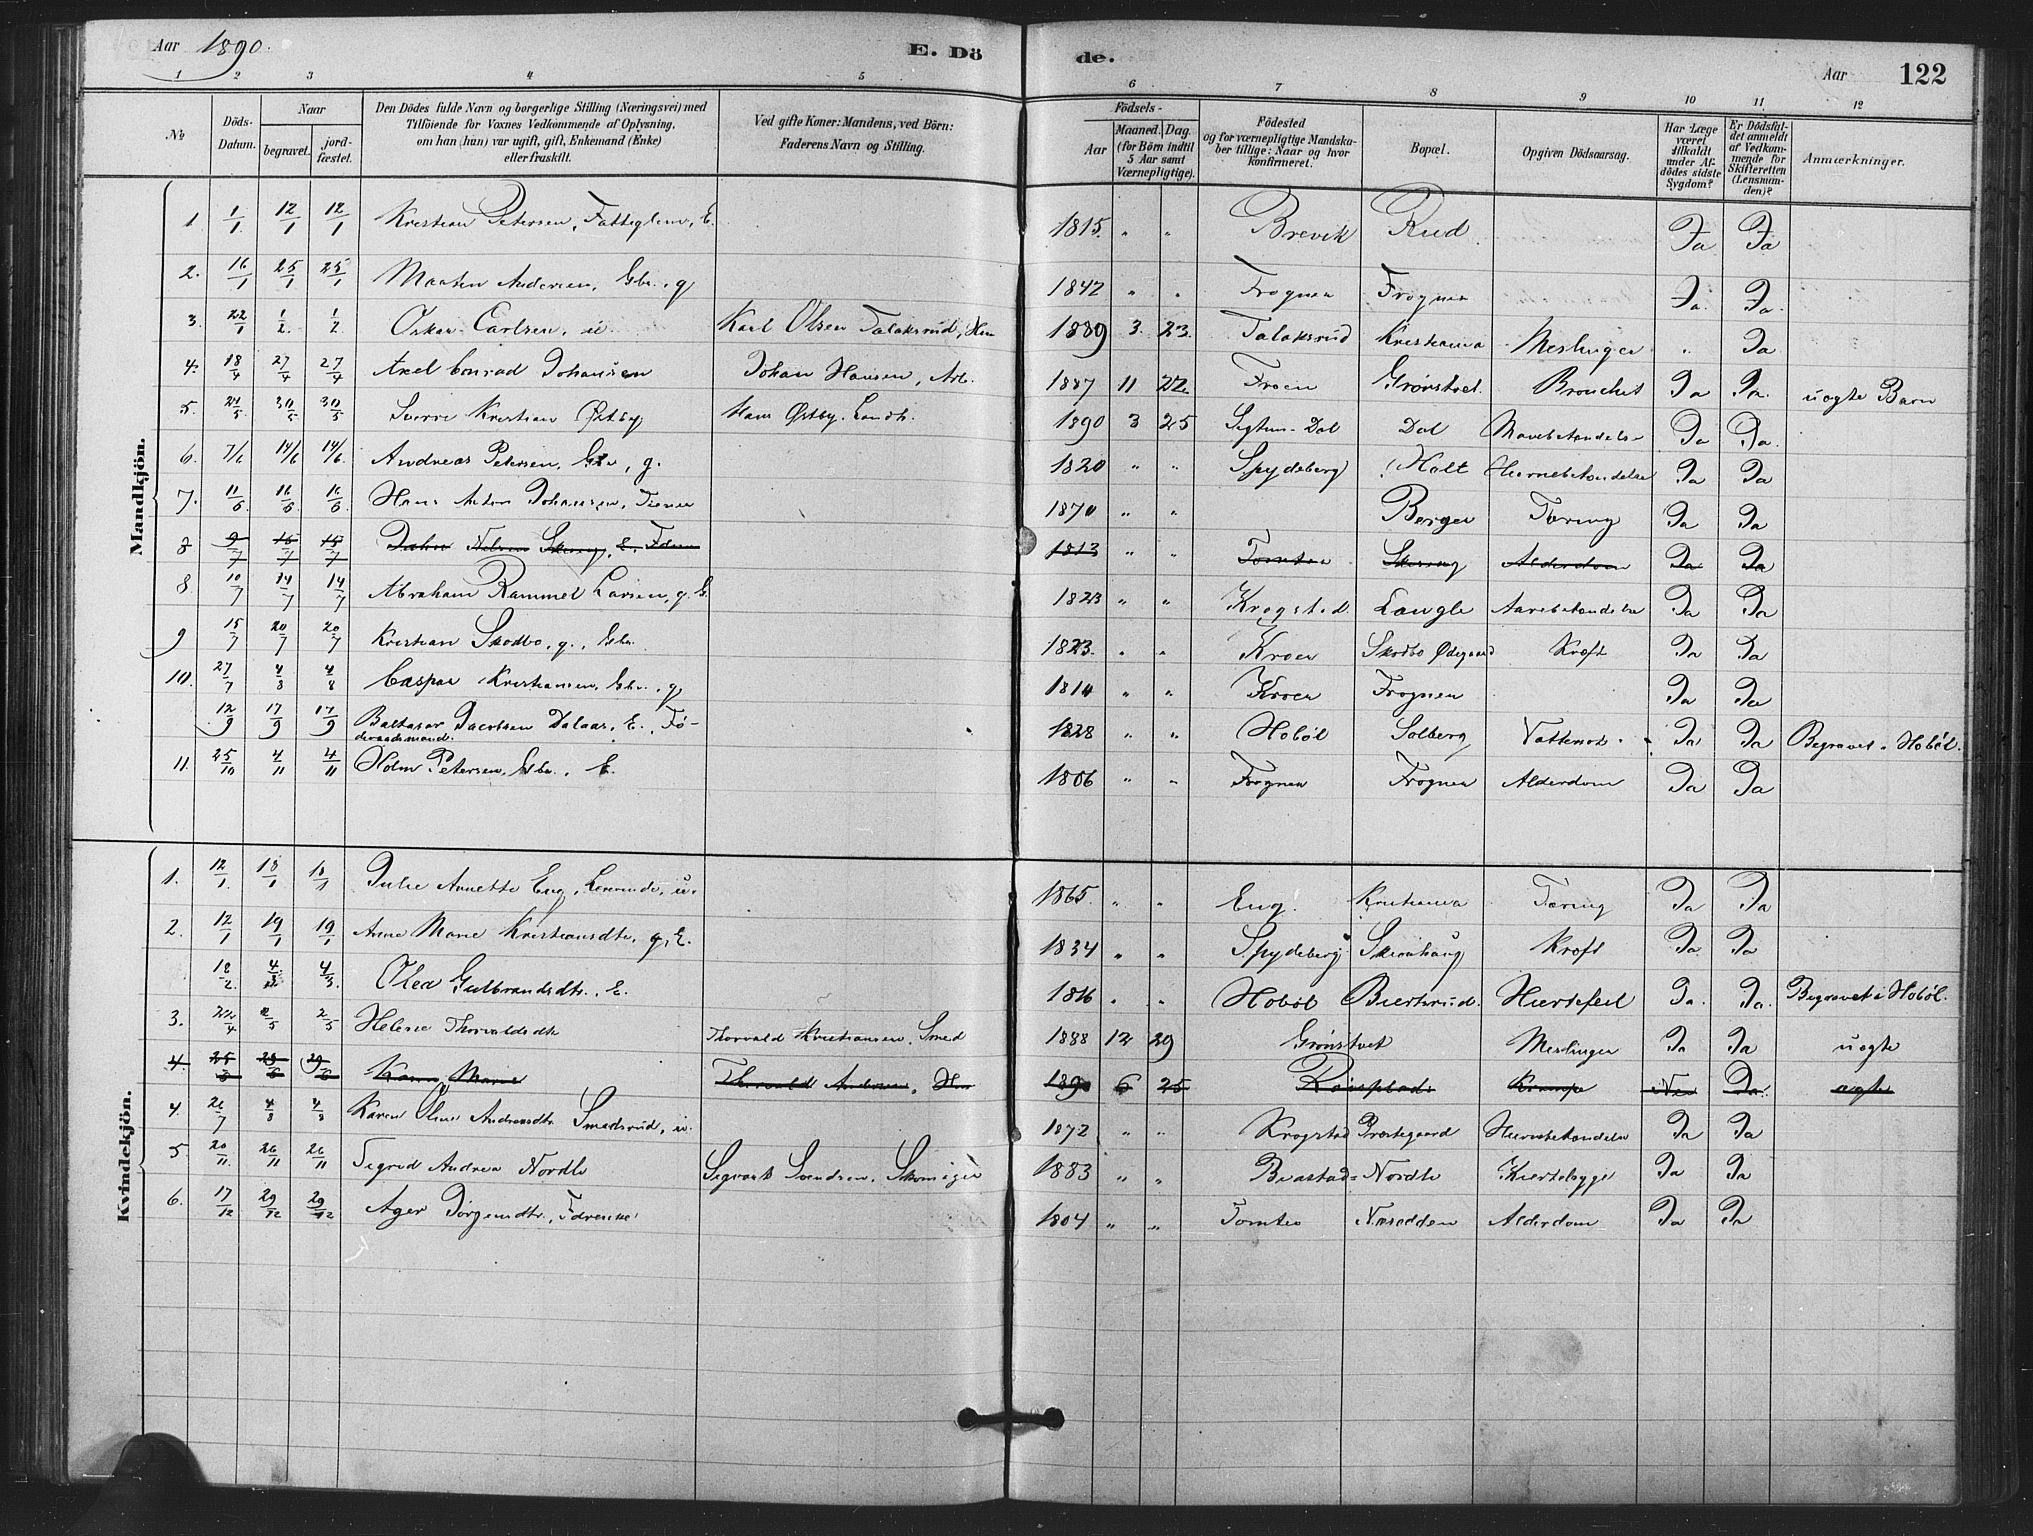 Aar 1890.
E. Dö de.
Aar 122
1 2 3 4 5 6 7 8 9 10 11 12
No
Döds-Datum.
Naar
begravet.
jord-fæstet.
Den Dödes fulde Navn og borgerlige Stilling (Næringsvei) med
Tilföiende for Voxnes Vedkommende af Oplysning,
om han (hun) var ugift, gift, Enkemand (Enke)
eller fraskilt.
Ved gifte Koner: Mandens, ved Börn:
Faderens Navn og Stilling.
Födsels-
Aar
Maaned. Dag.
(for Börn indtil
5 Aar samt
Værnepligtige).
Födested
og for værnepligtige Mandska-
ber tillige: Naar og hvor
konfirmeret.
Bopæl.
Opgiven Dödsaarsag.
Har Læge
været
tilkaldt
under Af-
dödes sidste
Sygdom?
Er Dödsfal-
det anmeldt
af Vedkom-
mende for
Skifteretten
(Lensman-
den)?
Anmærkninger.
Mandkjön.
1. 1/1 12/1 12/1 Kristian Petersen, Fattiglem, E. 1815. " " Brevik Rud. Ja Ja
2. 16/1 25/1 25/1 Martin Andersen, Gbr., g 1842 " " Frogner Frogner Ja. Ja.
3. 22/1 1/2. 1/2. Oskar Carlsen, u. Karl Olsen Talaksrud, Hm 1889 3. 23. Talaksrud Kristiania Meslinger " Ja
4. 18/4 27/4 27/4 Axel Conrad Johansen Johan Hansen, Arb. 1887 11 22. Froen Grønstvet Bronchit Ja Ja. uægte Barn
5. 21/5 30/5 30/5 Sverre Kristian Østby Hans Østby, Landh. 1890 3 25 Dal Dal Mavebetændelse Ja Ja.
6. 7/6 14/6 14/6. Andreas Petersen, Gbr, g. 1820 " " Spydeberg Holt Hiernebetændelse Ja Ja
7. 11/6 16/6 16/6. Hans Anton Johansen, Tiener 1870 " " Berger Tæring Ja Ja
8 9/7 15/7 15/7 1813 " " Tomter Alderdom Ja Ja
8 10/7 14/7 14/7 Abraham Rammel Larsen, g. G. 1823 " " Krogstad Langli Aarebetændelse Ja Ja
9 15/7 20/7 20/7 Kristian Skodbo, g., Gbr. 1823. " " Kroer Skodbo Ødegaard Kræft Ja Ja
10. 27/7 4/8 4/8 Caspar Kristiansen, Gbr., g 1814 " " Kroer Frogner Ja Ja
12/9 17/9 17/9 Baltasar Jacobsen Dalaas, E., Fø-
deraadsmand. 1828 " " Hobøl Solberg Vattersot Ja Ja Begravet i Hobøl.
11. 25/10 4/11 4/11 Holm Petersen, Gbr., E. 1806 " " Frogner Frogner Alderdom Ja Ja
Kvindekjön.
1. 12/1. 18/1 18/1 Julie Annette Eng, Lærerinde, u. 1865. " " Eng. Kristiania Tæring Ja Ja
2. 12/1 19/1 19/1 Anne Marie Kristiansdtr, g, E. 1834 " " Spydeberg Skirahaug Kræft Ja. Ja
18/2. 4/3 4/3. Olea Gulbrandsdtr., E. 1816 " " Hobøl Hiertefeil Ja. Ja. Begravet i Hobøl.
3. 24/4 2/5 2/5 Helene Thorvaldsdtr Thorvald Kristiansen, Smed 1888 12 29 Grønstvet Meslinger Ja Ja uægte
4. 25/6 29/6 29/6 Karen Marie Thorvald Andersen, Hm 1890 6 25 Krampe Nei Ja. ægte
4. 26/7 4/8 4/8 Karen Oline Andreasdtr Smedsrud, u. 1872 " " Krogstad Præstegaard Hiernebetændelse Ja Ja
5 20/11. 26/11 26/11 Sigrid Andrea Nordli Sigvart Svendsen, Skomager 1883 " " Nordli Kiertelsyge Ja Ja
6. 17/12 29/12 29/12 Ager Jørgensdtr, 1804 " " Tomter Næsodden Alderdom Ja Ja